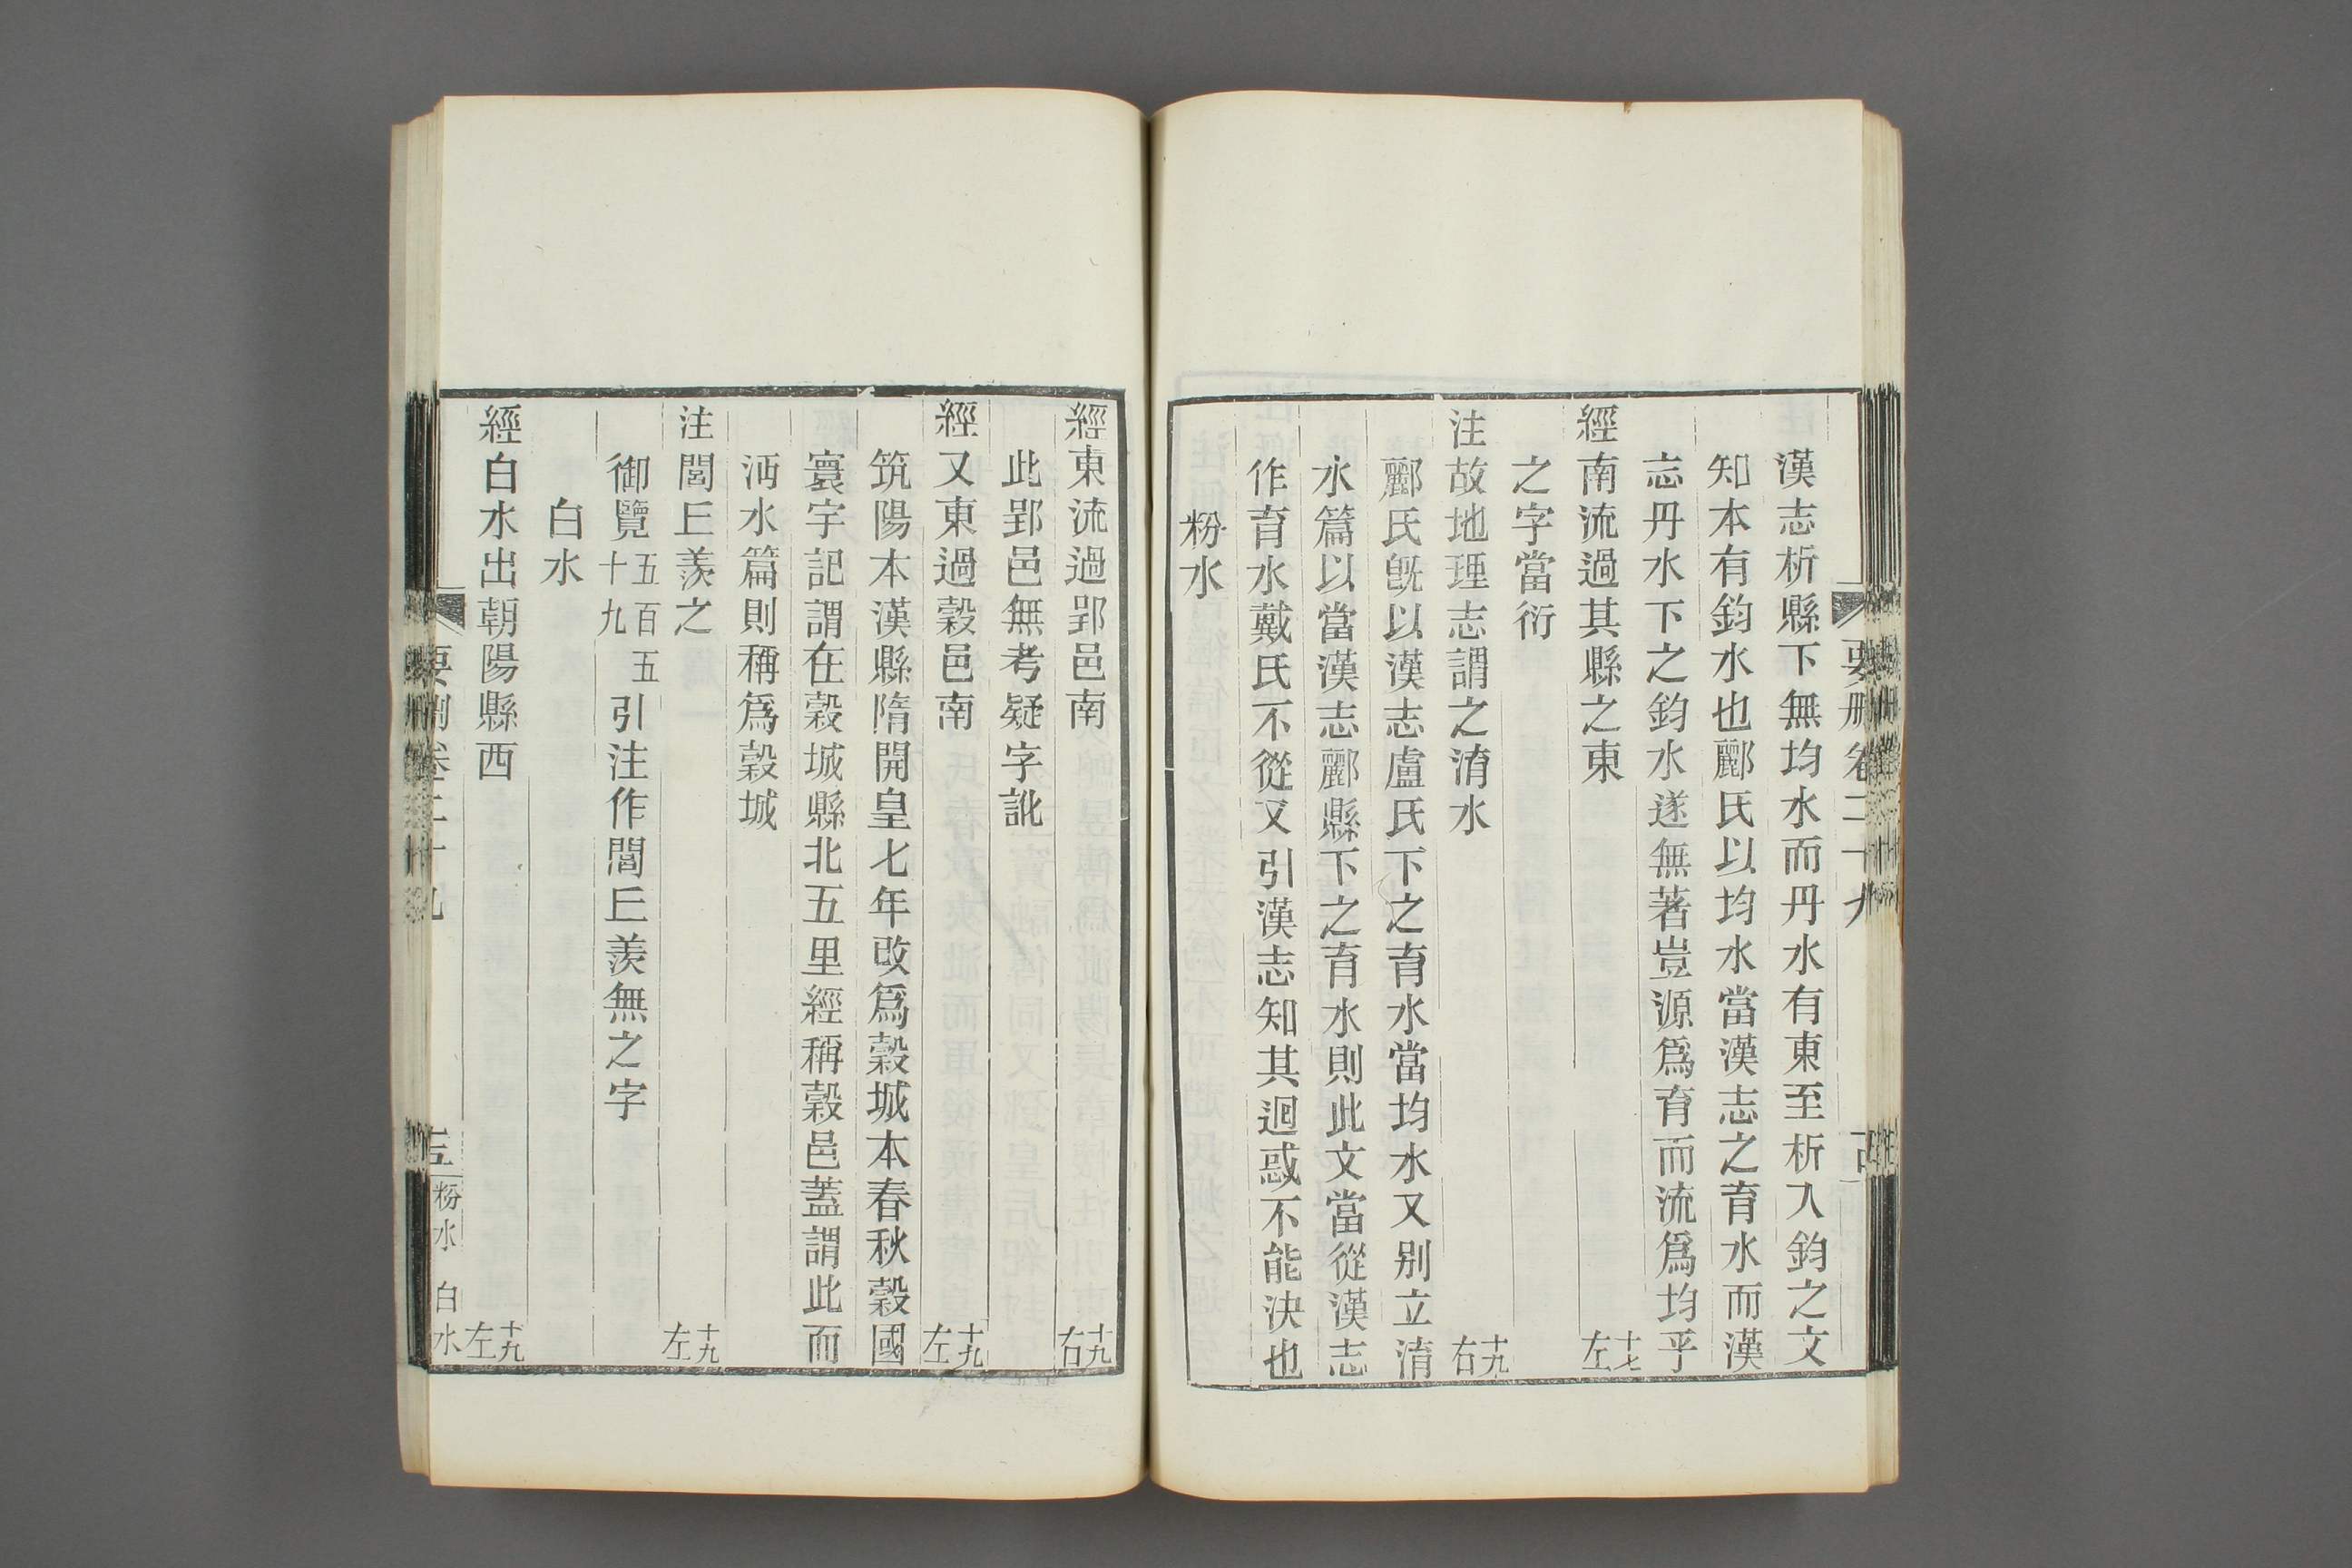 漢志析縣下無均水而丹水有東至析入鈞之文
知本有鈞水也酈氏以均水當漢志之育水而漢
志丹水下之鈞水遂無著豈源爲育而流爲均乎
經南流過其縣之東 十七左
之字當衍
注故地理志謂之淯水 十九右
酈氏旣以漢志盧氏下之育水當均水又别立淯
水篇以當漢志酈縣下之育水則此文當從漢志
作育水戴氏不從又引漢志知其迴惑不能決也
粉水
經東流過郢邑南 十九右
此郢邑無考疑字訛
經又東過穀邑南 十九左
筑陽本漢縣隋開皇七年改爲穀城本春秋穀國
寰宇記謂在穀城縣北五里經稱穀邑蓋謂此而
沔水篇則稱爲穀城
注閭巨羨之 十九左
御覽五百五十九引注作閭巨羨無之字
白水
經白水出朝陽縣西 十九左
要刪卷二十九
粉水 白水